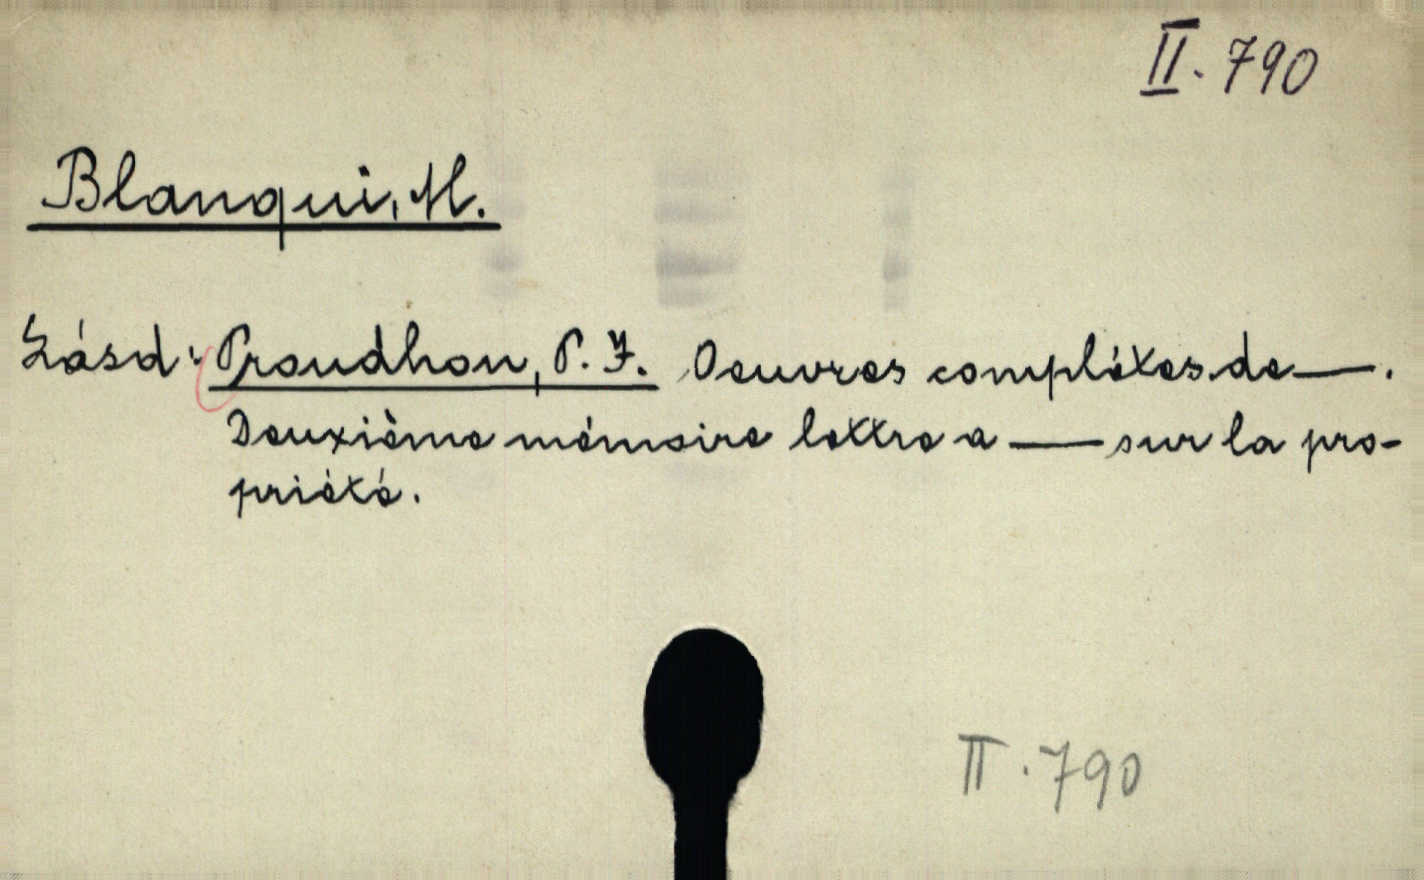 II. 790
Blanqui, M.
Lásd: Proudhon, P. J. Oeuvres complétes de —.
Deuxième mémoire lettre a — sur la pro-
priété.
II. 790